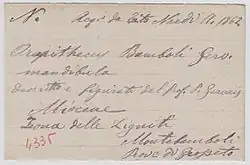 N. Acq. da Tito Nardi A. 1862
Oreopithecus Bambolii Gerv.
mandibula
descritto e figurato dal Prof. P. Gervais
Miocene
Zona delle Ligniti
4335 Montebamboli
Prov. di Grosseto